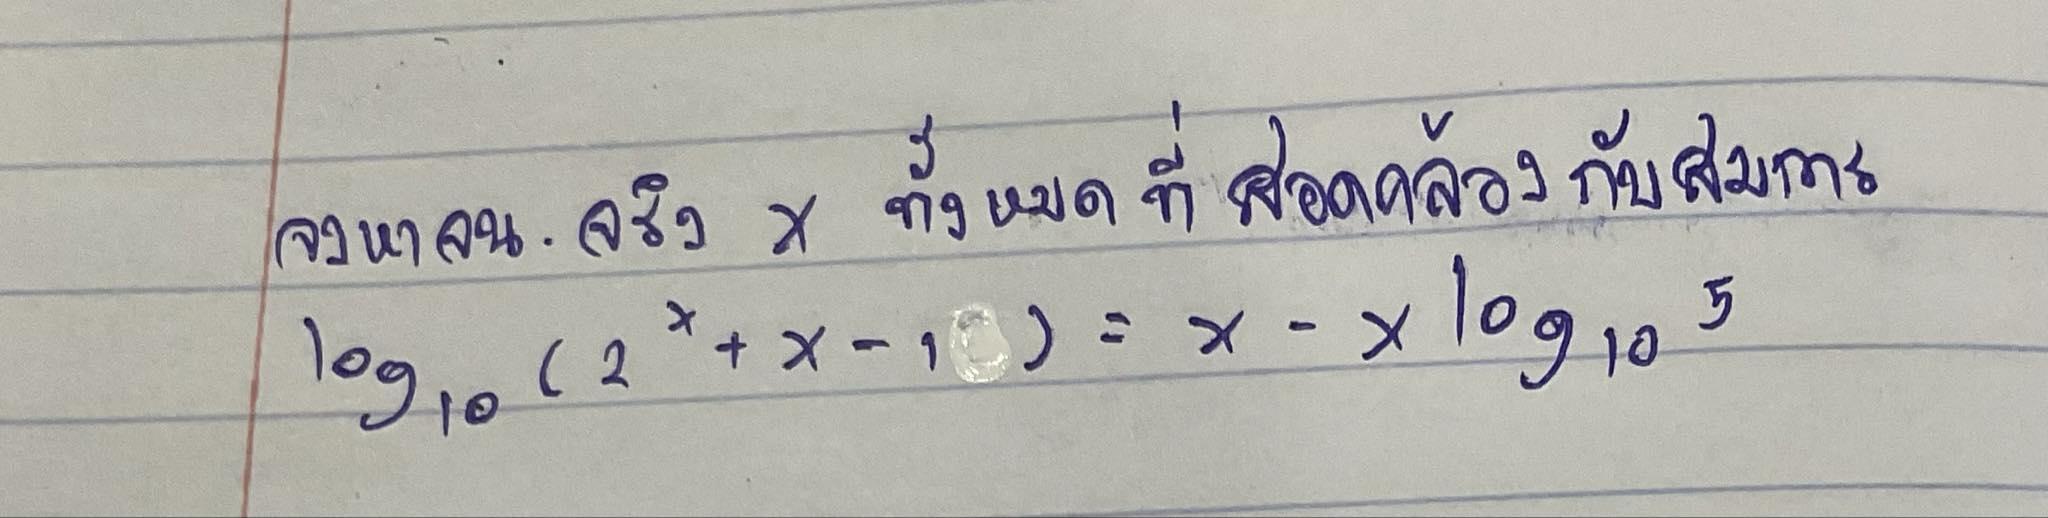 จงหา จน. จริง x ทั้งหมด ที่ สอดคล้อง กับ สมการ
log₁₀ (2ˣ + x - 1 ) = x - x log₁₀ 5